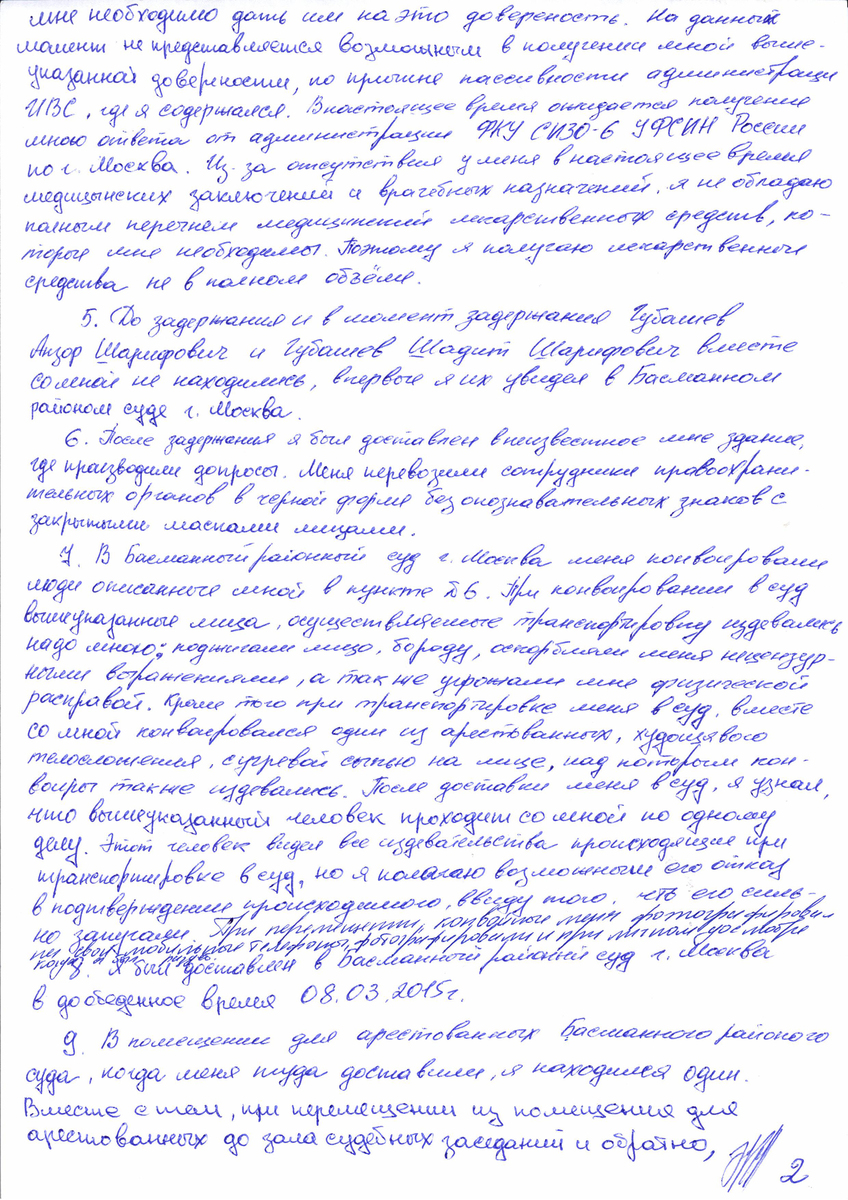 мне необходимо дать им на это довереность. На данных
момент не представляется возможным в получении мной выше-
указанной доверности, по причине пассивности администраци
ИВС, где я содержался. В настоящее время ожидается получение
мною ответа от администрации ФКУ СИЗО-6 УФСИН России
по г. Москва. Из-за отсутствия у меня в настоящее время
медицынских заключений и врачебных назначений, я не обладаю
полным перечнем медицинский лекарственных средств, ко-
торые мне необходимы. Поэтому я получаю лекарственные
средства не в полном объёме.
5. До задержания и в момент задержания Губашев
Анзор Шарифович и Губашев Шадит Шарифович вместе
со мной не находились, впервые я их увидел в Басманном
районом суде г. Москва.
6. После задержания я был доставлен в неизвестное мне здание,
где производили допросы. Меня перевозили сотрудники правоохрани-
тельных органов в черной форме без опознавательных знаков с
закрытыми масками лицами.
7. В Басманный районный суд г. Москва меня конвоировали
люди описанные мной в пункте №6. При конвоировании в суд
вышеуказанные лица, осуществляемые транспортировку издевались
надо мною: поджигали лицо, бороду, оскорбляли меня нецензур-
ными выражениями, а так же угрожали мне физической
расправой. Кроме того при транспортировке меня в суд, вместе
со мной конвоировался один из арестованных, худощявого
телосложения, с угревой сыпью на лице, над которым кон-
воиры также издевались. После доставки меня в суд, я узнал,
что вышеуказанный человек проходит со мной по одному
делу. Этот человек видел все издевательства происходящие при
транспортировке в суд, но я полагаю возможным его отказ
в подтверждении происходимого, ввиду того, что его силь-
но запугали. При перемещении, конвойные меня фотографировали
на свои мобильные телефоны, фотографировали и при личном досмотре
когда я был
8. Я был доставлен в Басманный районный суд г. Москва
в дообеденное время 08.03.2015г.
9. В помещении для арестованных Басманного районого
суда, когда меня туда доставили, я находился один.
Вместе с тем, при перемещении из помещения для
арестованных до зала судебных заседаний и обратно,
2